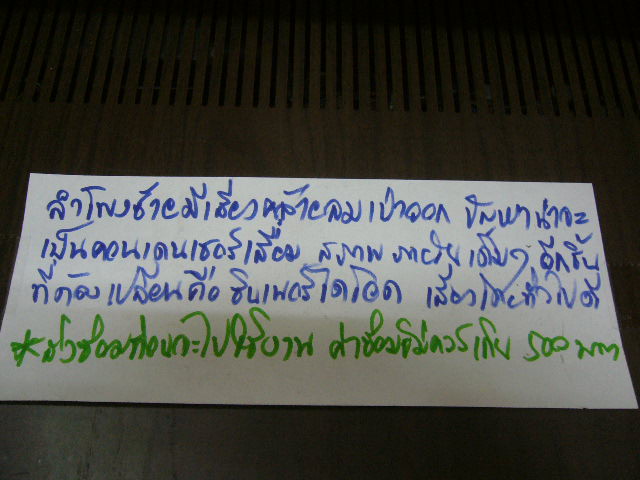 ลำโพงซ้ายมีเสียงคล้ายลมเป่าออก ปัญหาน่าจะ
เป็นคอนเดนเซอร์เสื่อม สภาพภายในเดิมๆ อีกชิ้น
ที่ต้องเปลี่ยนคือ ซินเนอร์ไดโอด เสียงโดยทั่วไปดี
*ส่งซ่อมก่อนจะไปใช้งาน ค่าซ่อมไม่ควรเกิน 500 บาท